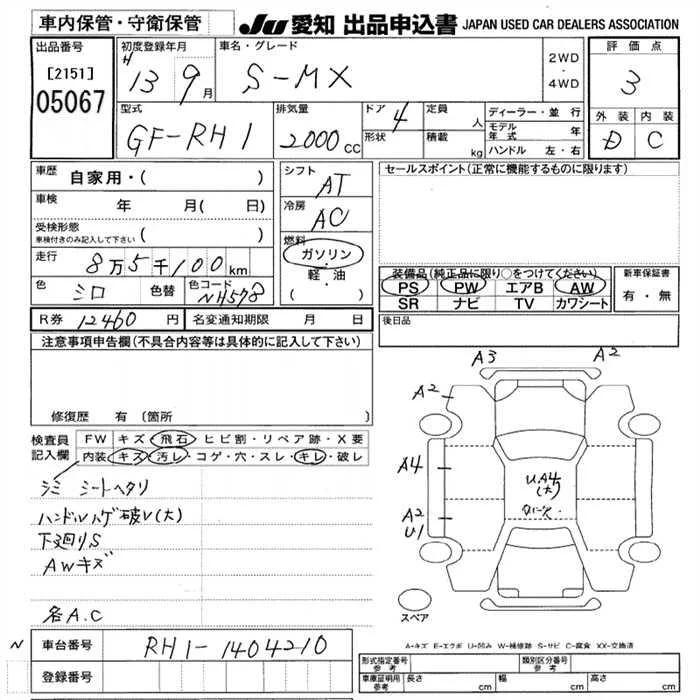 車内保管・守衛保管
JU 愛知 出品申込書 JAPAN USED CAR DEALERS ASSOCIATION
出品番号
[2151]
05067
初度登録年月
H 13 9月
車名・グレード
S-MX
2WD
・
4WD
評価点
3
外装 内装
D C
型式
GF-RH1
排気量
2000 CC
ドア 4
形状
定員 人
積載 kg
ディーラー・並行
モデル年式 年
ハンドル 左・右
車歴 自家用・( )
車検 年 月( 日)
受検形態
車検付きのみ記入して下さい ( )
走行 8万5千100km
色 シロ 色替 色コード NH578
シフト
AT
冷房
AC
燃料
ガソリン
・
軽・油
( )
セールスポイント(正常に機能するものに限ります)
装備品(純正品に限り○をつけてください)
PS PW エアB AW
SR ナビ TV カワシート
新車保証書
有・無
R券 12460 円 名変通知期限 月 日
後日品
注意事項申告欄(不具合内容等は具体的に記入して下さい)
修復歴 有 〔箇所 〕
検査員記入欄
FW キズ・飛石・ヒビ割・リペア跡・X要
内装・キズ・汚レ・コゲ・穴・スレ・キレ・破レ
シミ シートヘタリ
ハンドルハゲ破レ(大)
下廻りS
AWキズ
各A.C
A3 A2
A2
A4
A2
U1
U.A4
(大)
スペア
A-キズ E-エクボ U-凹み W-補修跡 S-サビ C-腐食 XX-交換済
N 車台番号 RH1-1404210
登録番号
形式指定番号 参考
類別区分番号 参考
車庫証明用 参考 長さ cm 幅 cm 高さ cm